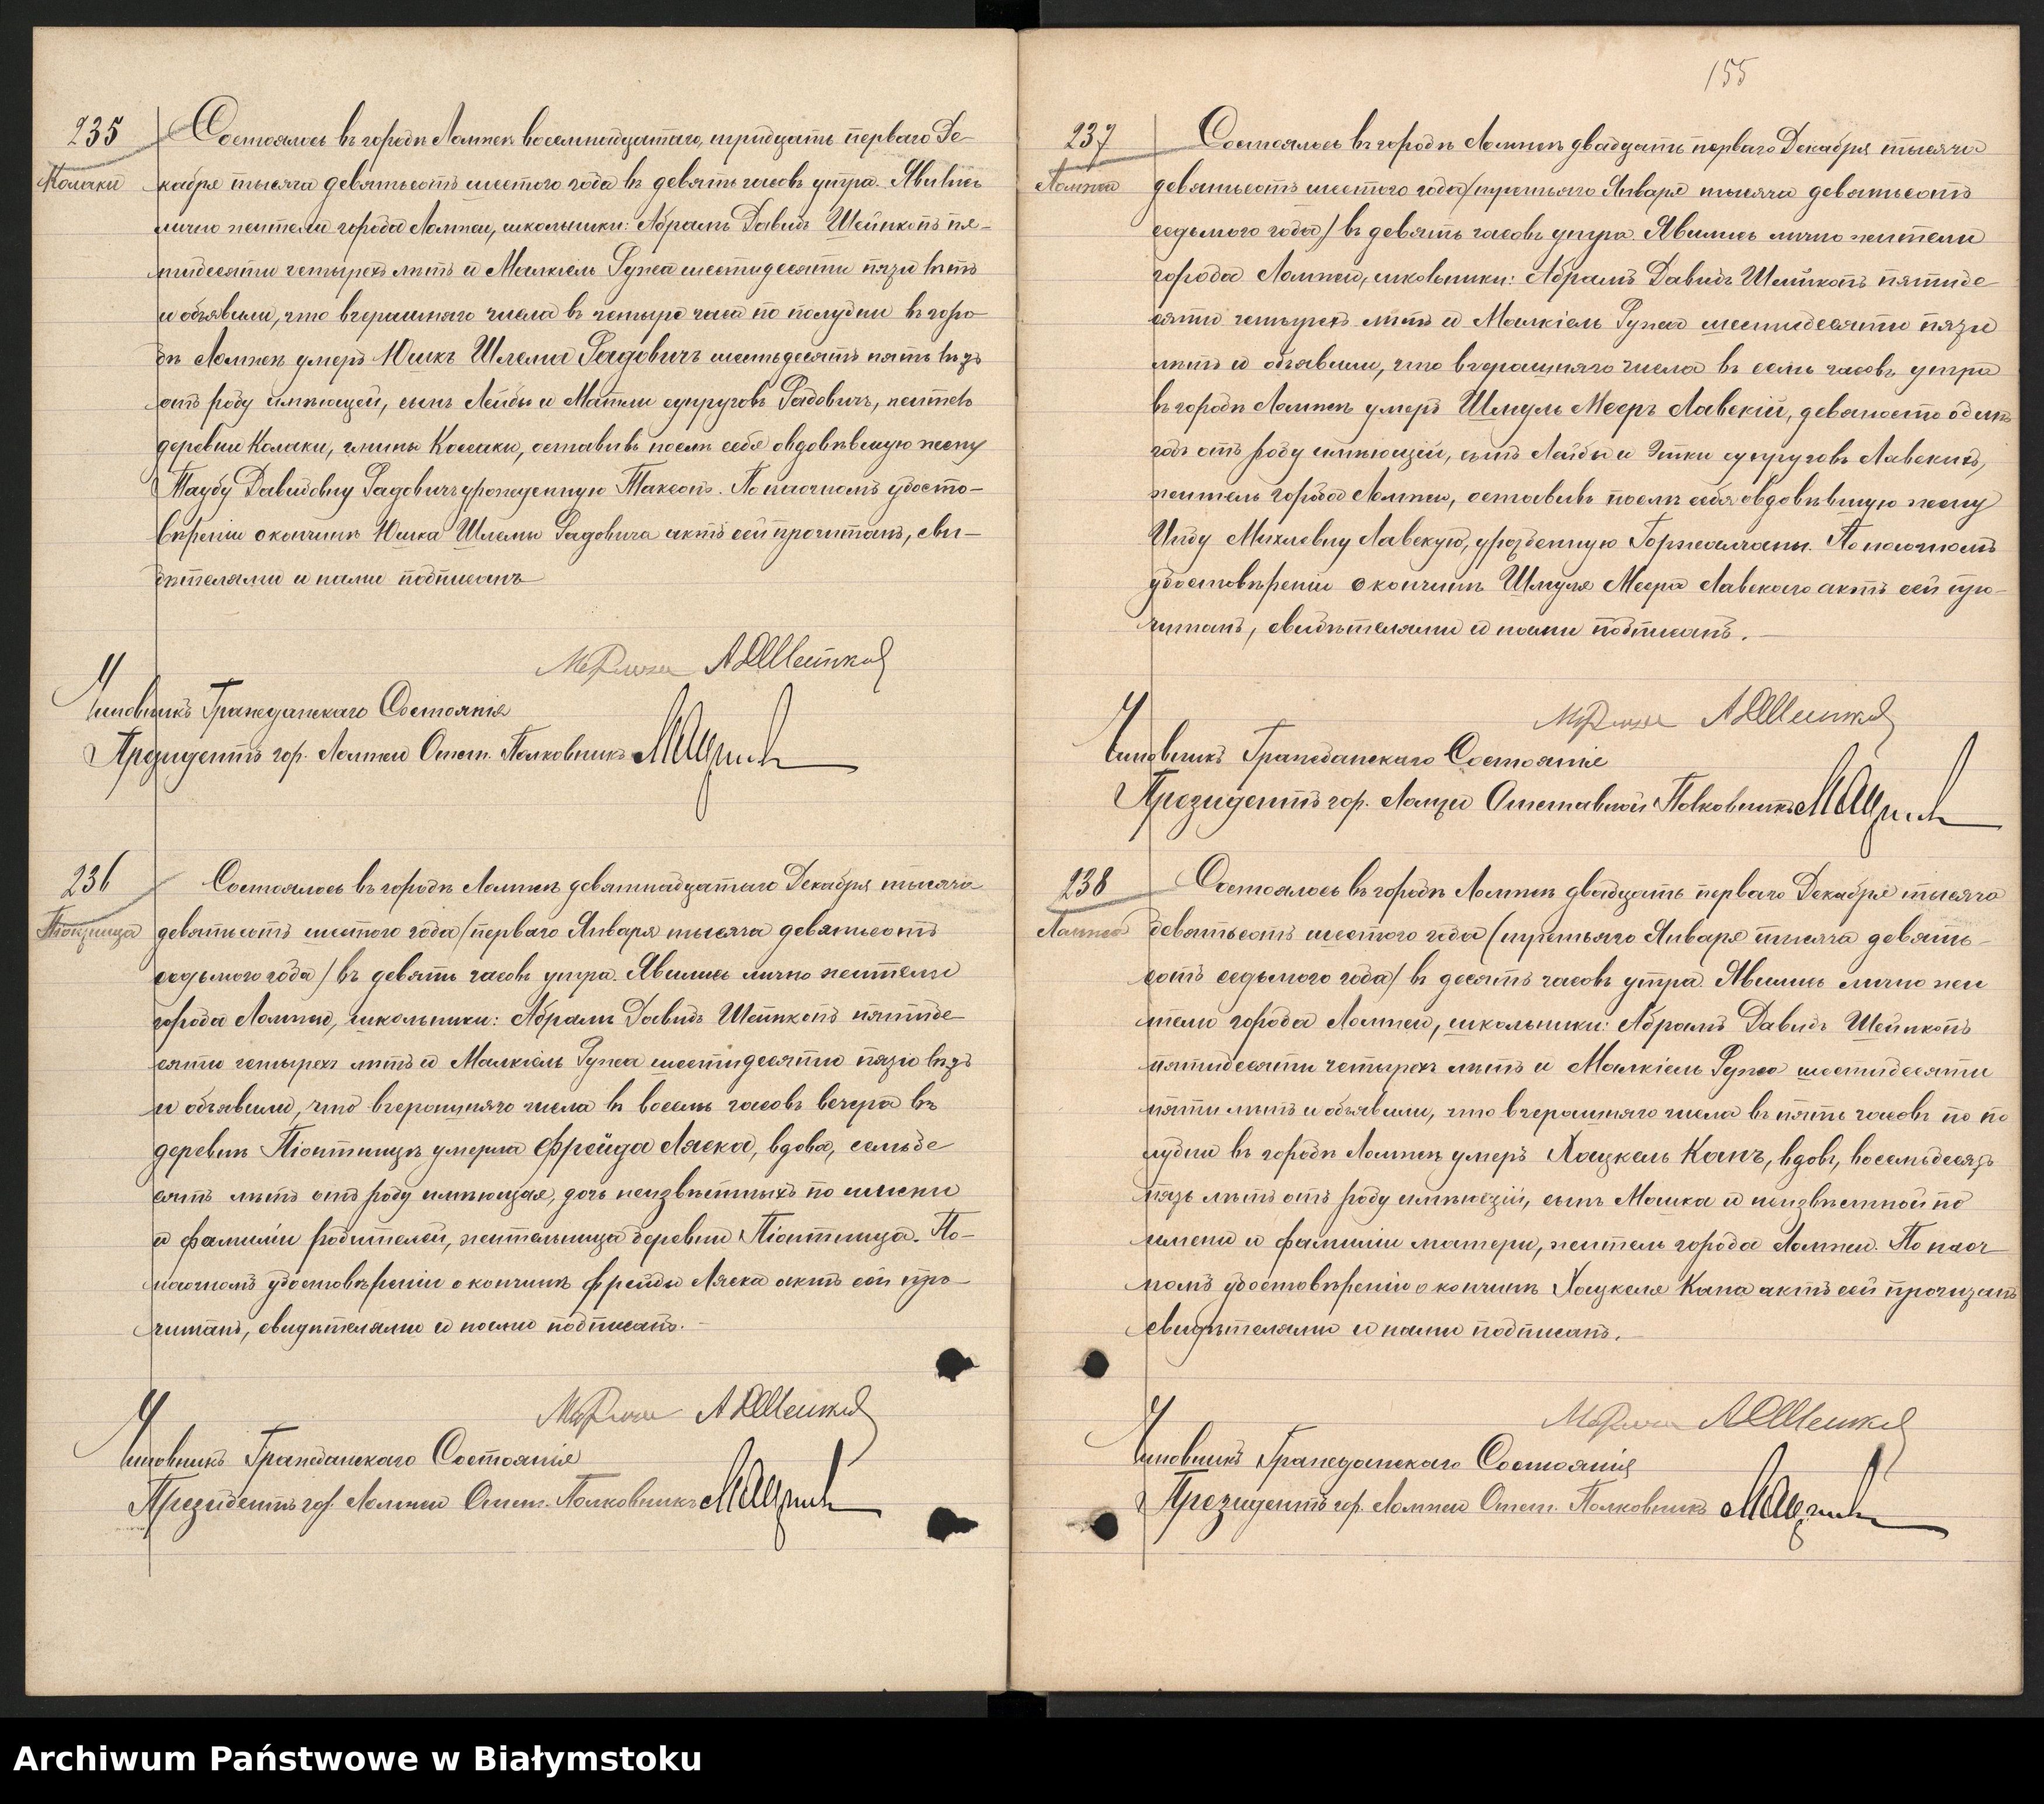 235
Колаки
Состоялось въ городѣ Ломжѣ восемнадцатаго, тридцать перваго Де-
кабря тысяча девятьсотъ шестого года въ девять часовъ утра. Явились
лично жители города Ломжи, школьники: Абрамъ Давидъ Шейнкопъ пя-
тидесяти четырехъ лѣтъ и Малкіель Ружа шестидесяти пяти лѣтъ
и объявили, что вчерашняго числа въ четыре часа по полудни въ горо-
дѣ Ломжѣ умеръ Юшкъ Шлема Радовичъ шестьдесятъ пять лѣтъ
отъ роду имѣющій, сынъ Лейбы и Матли супруговъ Радовичъ, житель
деревни Колаки, гмины Коссаки, оставивъ послѣ себя овдовѣвшую жену
Таубу Давидовну Радовичъ урожденную Таксонъ. По наочномъ удосто-
вѣреніи о кончинѣ Юшка Шлемы Радовича актъ сей прочитанъ, сви-
дѣтелями и нами подписанъ
М Ружа А Д Шейнкоп
Чиновникъ Гражданскаго Состоянія
Президентъ гор. Ломжи Отст. Полковникъ
236
Піонтница
Состоялось въ городѣ Ломжѣ девятнадцатаго Декабря тысяча
девятьсотъ шестого года (перваго Января тысяча девятьсотъ
седьмого года) въ девять часовъ утра. Явились лично жители
города Ломжи, школьники: Абрамъ Давидъ Шейнкопъ пятиде
сяти четырехъ лѣтъ и Малкіель Ружа шестидесяти пяти лѣтъ
и объявили, что вчерашняго числа въ восемь часовъ вечера въ
деревнѣ Піонтницѣ умерла Фрейда Ляска, вдова, семьде
сятъ лѣтъ отъ роду имѣющая, дочь неизвѣстныхъ по имени
и фамиліи родителей, жительница деревни Піонтница. По-
наочномъ удостовѣреніи о кончинѣ Фрейды Ляска актъ сей про-
читанъ, свидѣтелями и нами подписанъ.
М Ружа А Д Шейнкоп
Чиновникъ Гражданскаго Состоянія
Президентъ гор. Ломжи Отст. Полковникъ
155
237
Ломжа
Состоялось въ городѣ Ломжѣ двадцать перваго Декабря тысяча
девятьсотъ шестого года (третьяго Января тысяча девятьсотъ
седьмого года) въ девять часовъ утра. Явились лично жители
города Ломжи, школьники: Абрамъ Давидъ Шейнкопъ пятиде
сяти четырехъ лѣтъ и Малкіель Ружа шестидесяти пяти
лѣтъ и объявили, что вчерашняго числа въ семь часовъ утра
въ городѣ Ломжѣ умеръ Шмуль Мееръ Лавскій, девяносто одинъ
годъ отъ роду имѣющій, сынъ Лейбы и Этки супруговъ Лавскихъ,
житель города Ломжи, оставивъ послѣ себя овдовѣвшую жену
Михлевну Лавскую, урожденную Горжалчаны. По наочномъ
удостовѣреніи о кончинѣ Шмуля Меера Лавскаго актъ сей про-
читанъ, свидѣтелями и нами подписанъ.
М Ружа А Д Шейнкоп
Чиновникъ Гражданскаго Состоянія
Президентъ гор. Ломжи Отставной Полковникъ
238
Ломжа
Состоялось въ городѣ Ломжѣ двадцать перваго Декабря тысяча
девятьсотъ шестого года (третьяго Января тысяча девять-
сотъ седьмого года) въ десять часовъ утра. Явились лично жи
тели города Ломжи, школьники: Абрамъ Давидъ Шейнкопъ
пятидесяти четырехъ лѣтъ и Малкіель Ружа шестидесяти
пяти лѣтъ и объявили, что вчерашняго числа въ пять часовъ по по
лудни въ городѣ Ломжѣ умеръ Хацкель Канъ, вдовъ, восемьдесятъ
пять лѣтъ отъ роду имѣющій, сынъ Мошка и неизвѣстной по
имени и фамиліи матери, житель города Ломжи. По наоч
номъ удостовѣреніи о кончинѣ Хацкеля Кана актъ сей прочитанъ
свидѣтелями и нами подписанъ.
М Ружа А Д Шейнкоп
Чиновникъ Гражданскаго Состоянія
Президентъ гор. Ломжи Отст. Полковникъ
Archiwum Państwowe w Białymstoku